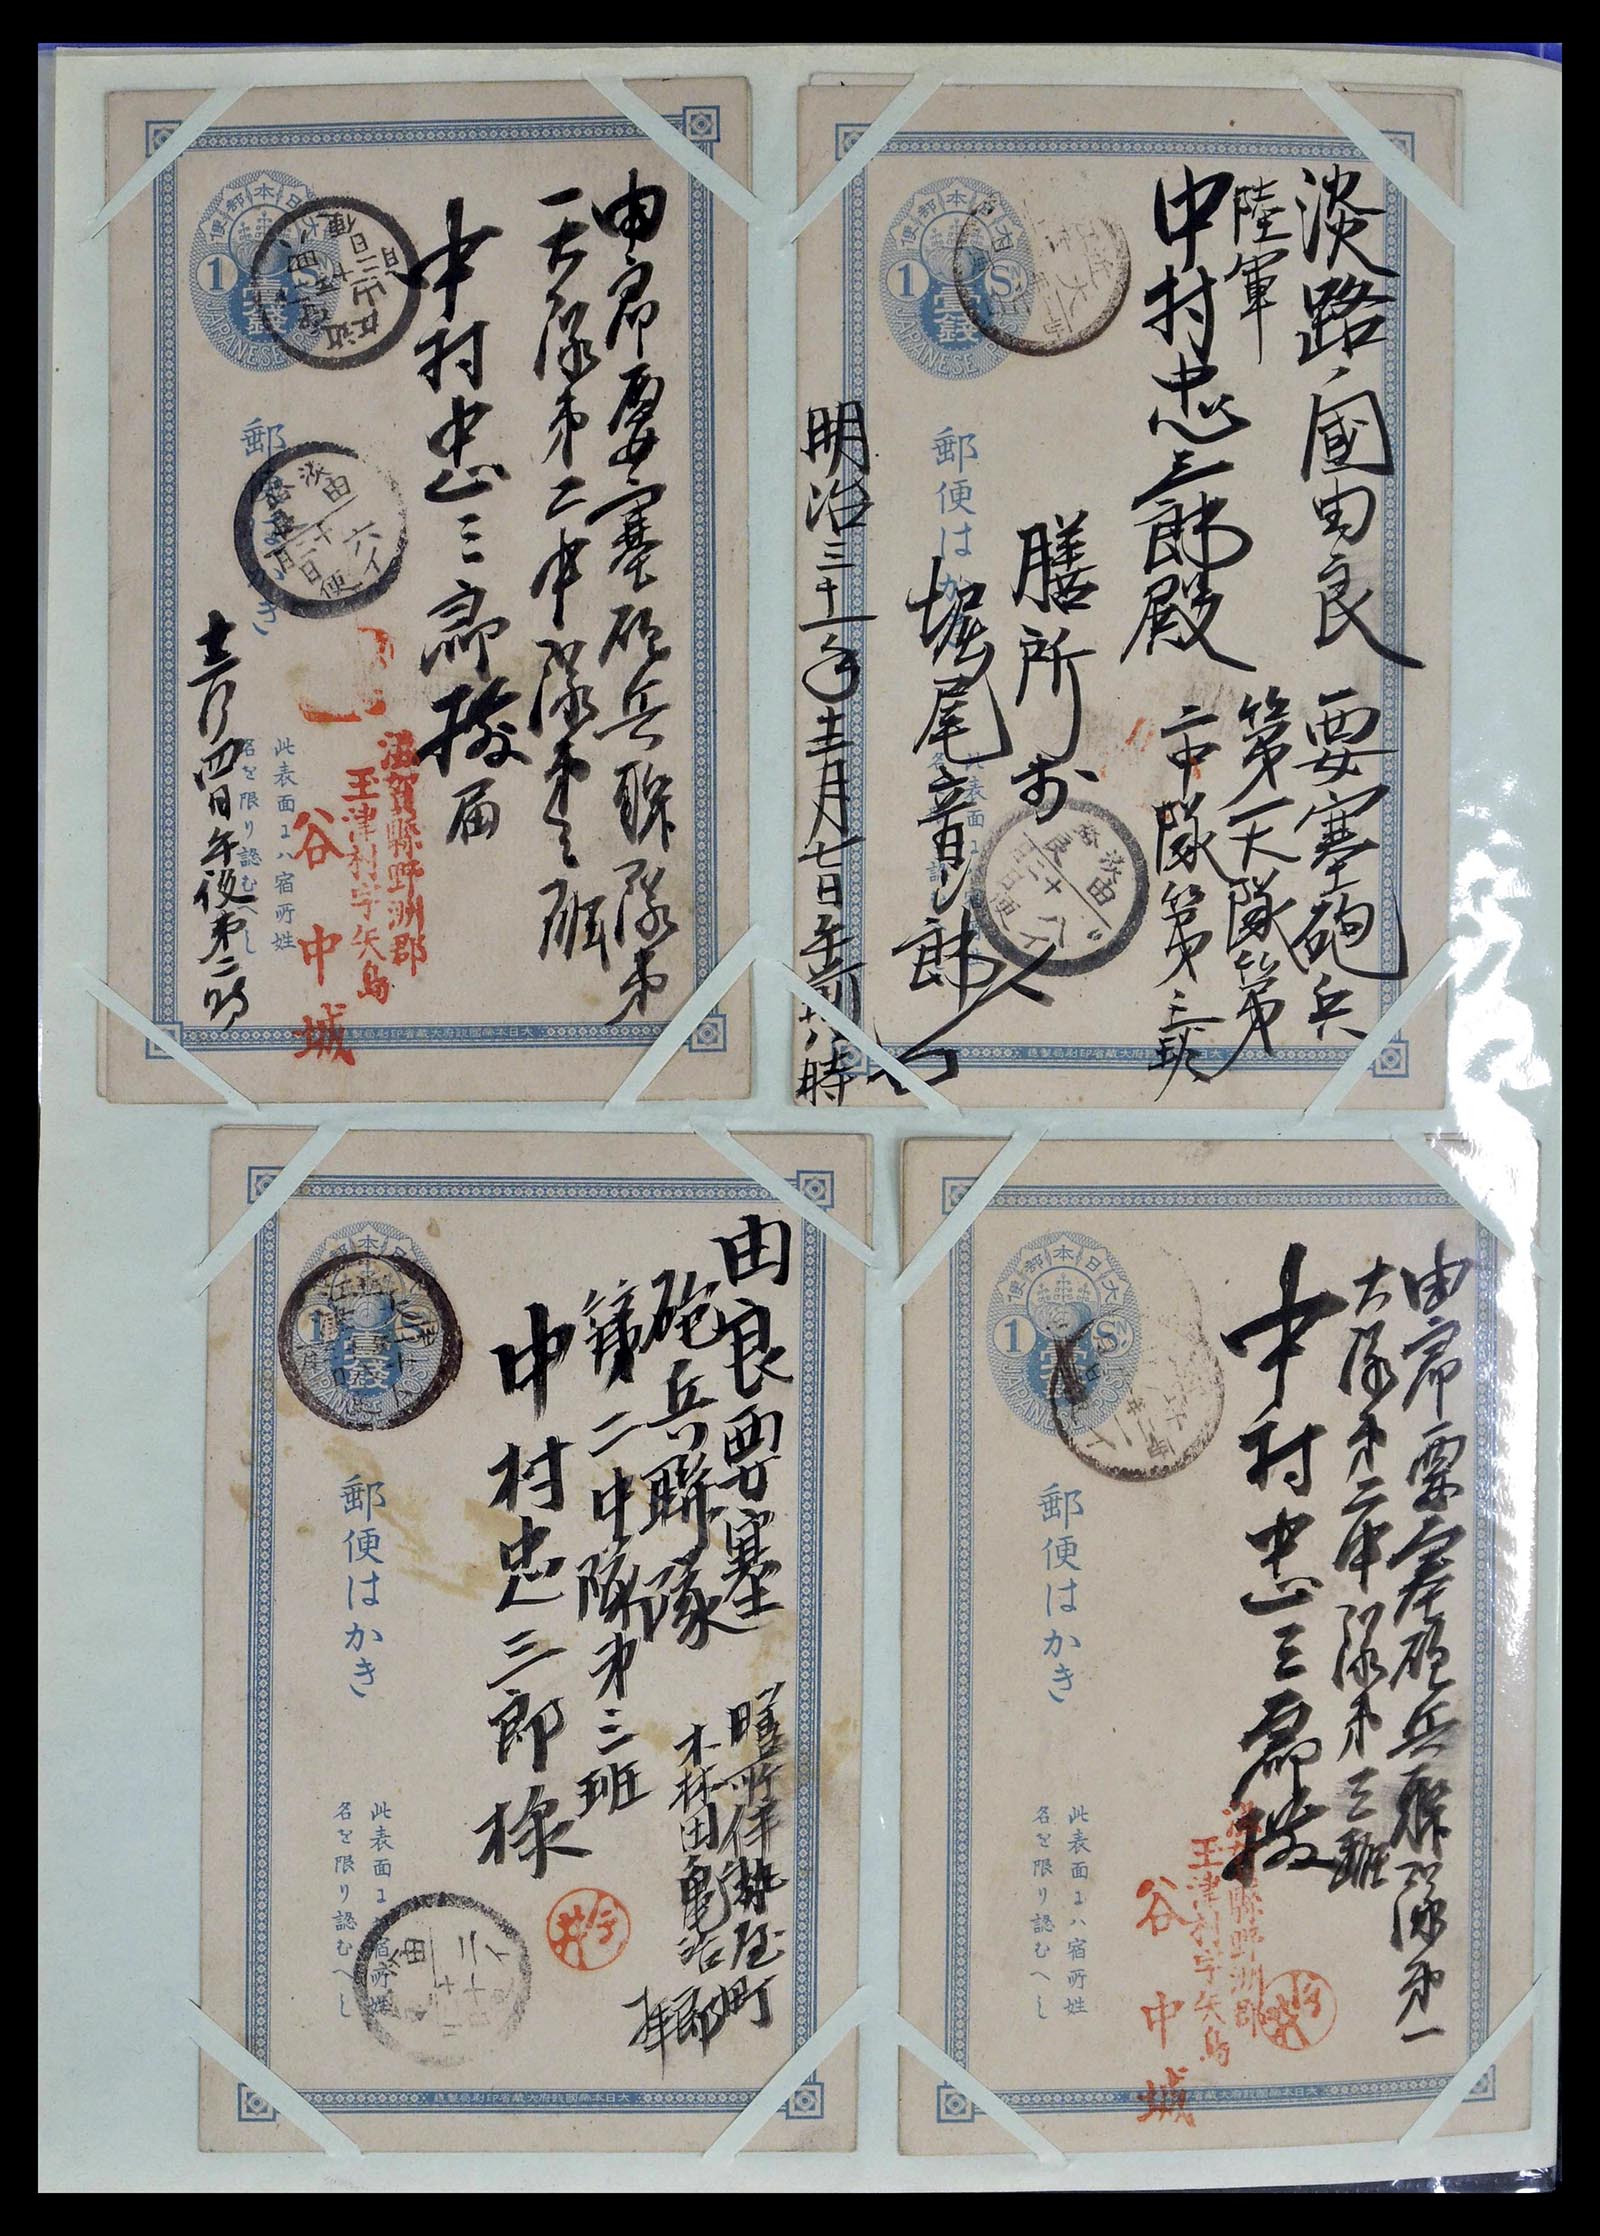 由良要塞砲兵聯隊第
一大隊第二中隊第三班
中村忠三郎様
届
大日本郵便
1 Sn
壹銭
JAPANESE POST
郵便はかき
此表面にハ宿所姓
名を限り認むへし
滋賀縣野洲郡
玉津村字矢島
谷中城
十二月四日午後第二時
大日本帝國政府大蔵省印刷局製造
淡路ノ國由良要塞砲兵
第一大隊第
二中隊第三班
陸軍
中村忠三郎殿
膳所町
堀尾音次郎
明治三十一年十二月七日午前八時
大日本郵便
1 Sn
壹銭
JAPANESE
郵便はかき
大日本帝國政府大蔵省印刷局製造
由良要塞
砲兵聯隊
第二中隊第三班
中村忠三郎様
大日本郵便
1 S
壹銭
JAPANESE POST
郵便はかき
此表面にハ宿所姓
名を限り認むへし
大日本帝國政府大蔵省印刷局製造
由良要塞砲兵聯隊第一
大隊第二中隊第三班
中村忠三郎様
大日本郵便
1 Sn
壹銭
JAPANESE POST
郵便はかき
此表面にハ宿所姓
名を限り認むへし
滋賀縣野洲郡
玉津村字矢島
谷中城
大日本帝國政府大蔵省印刷局製造